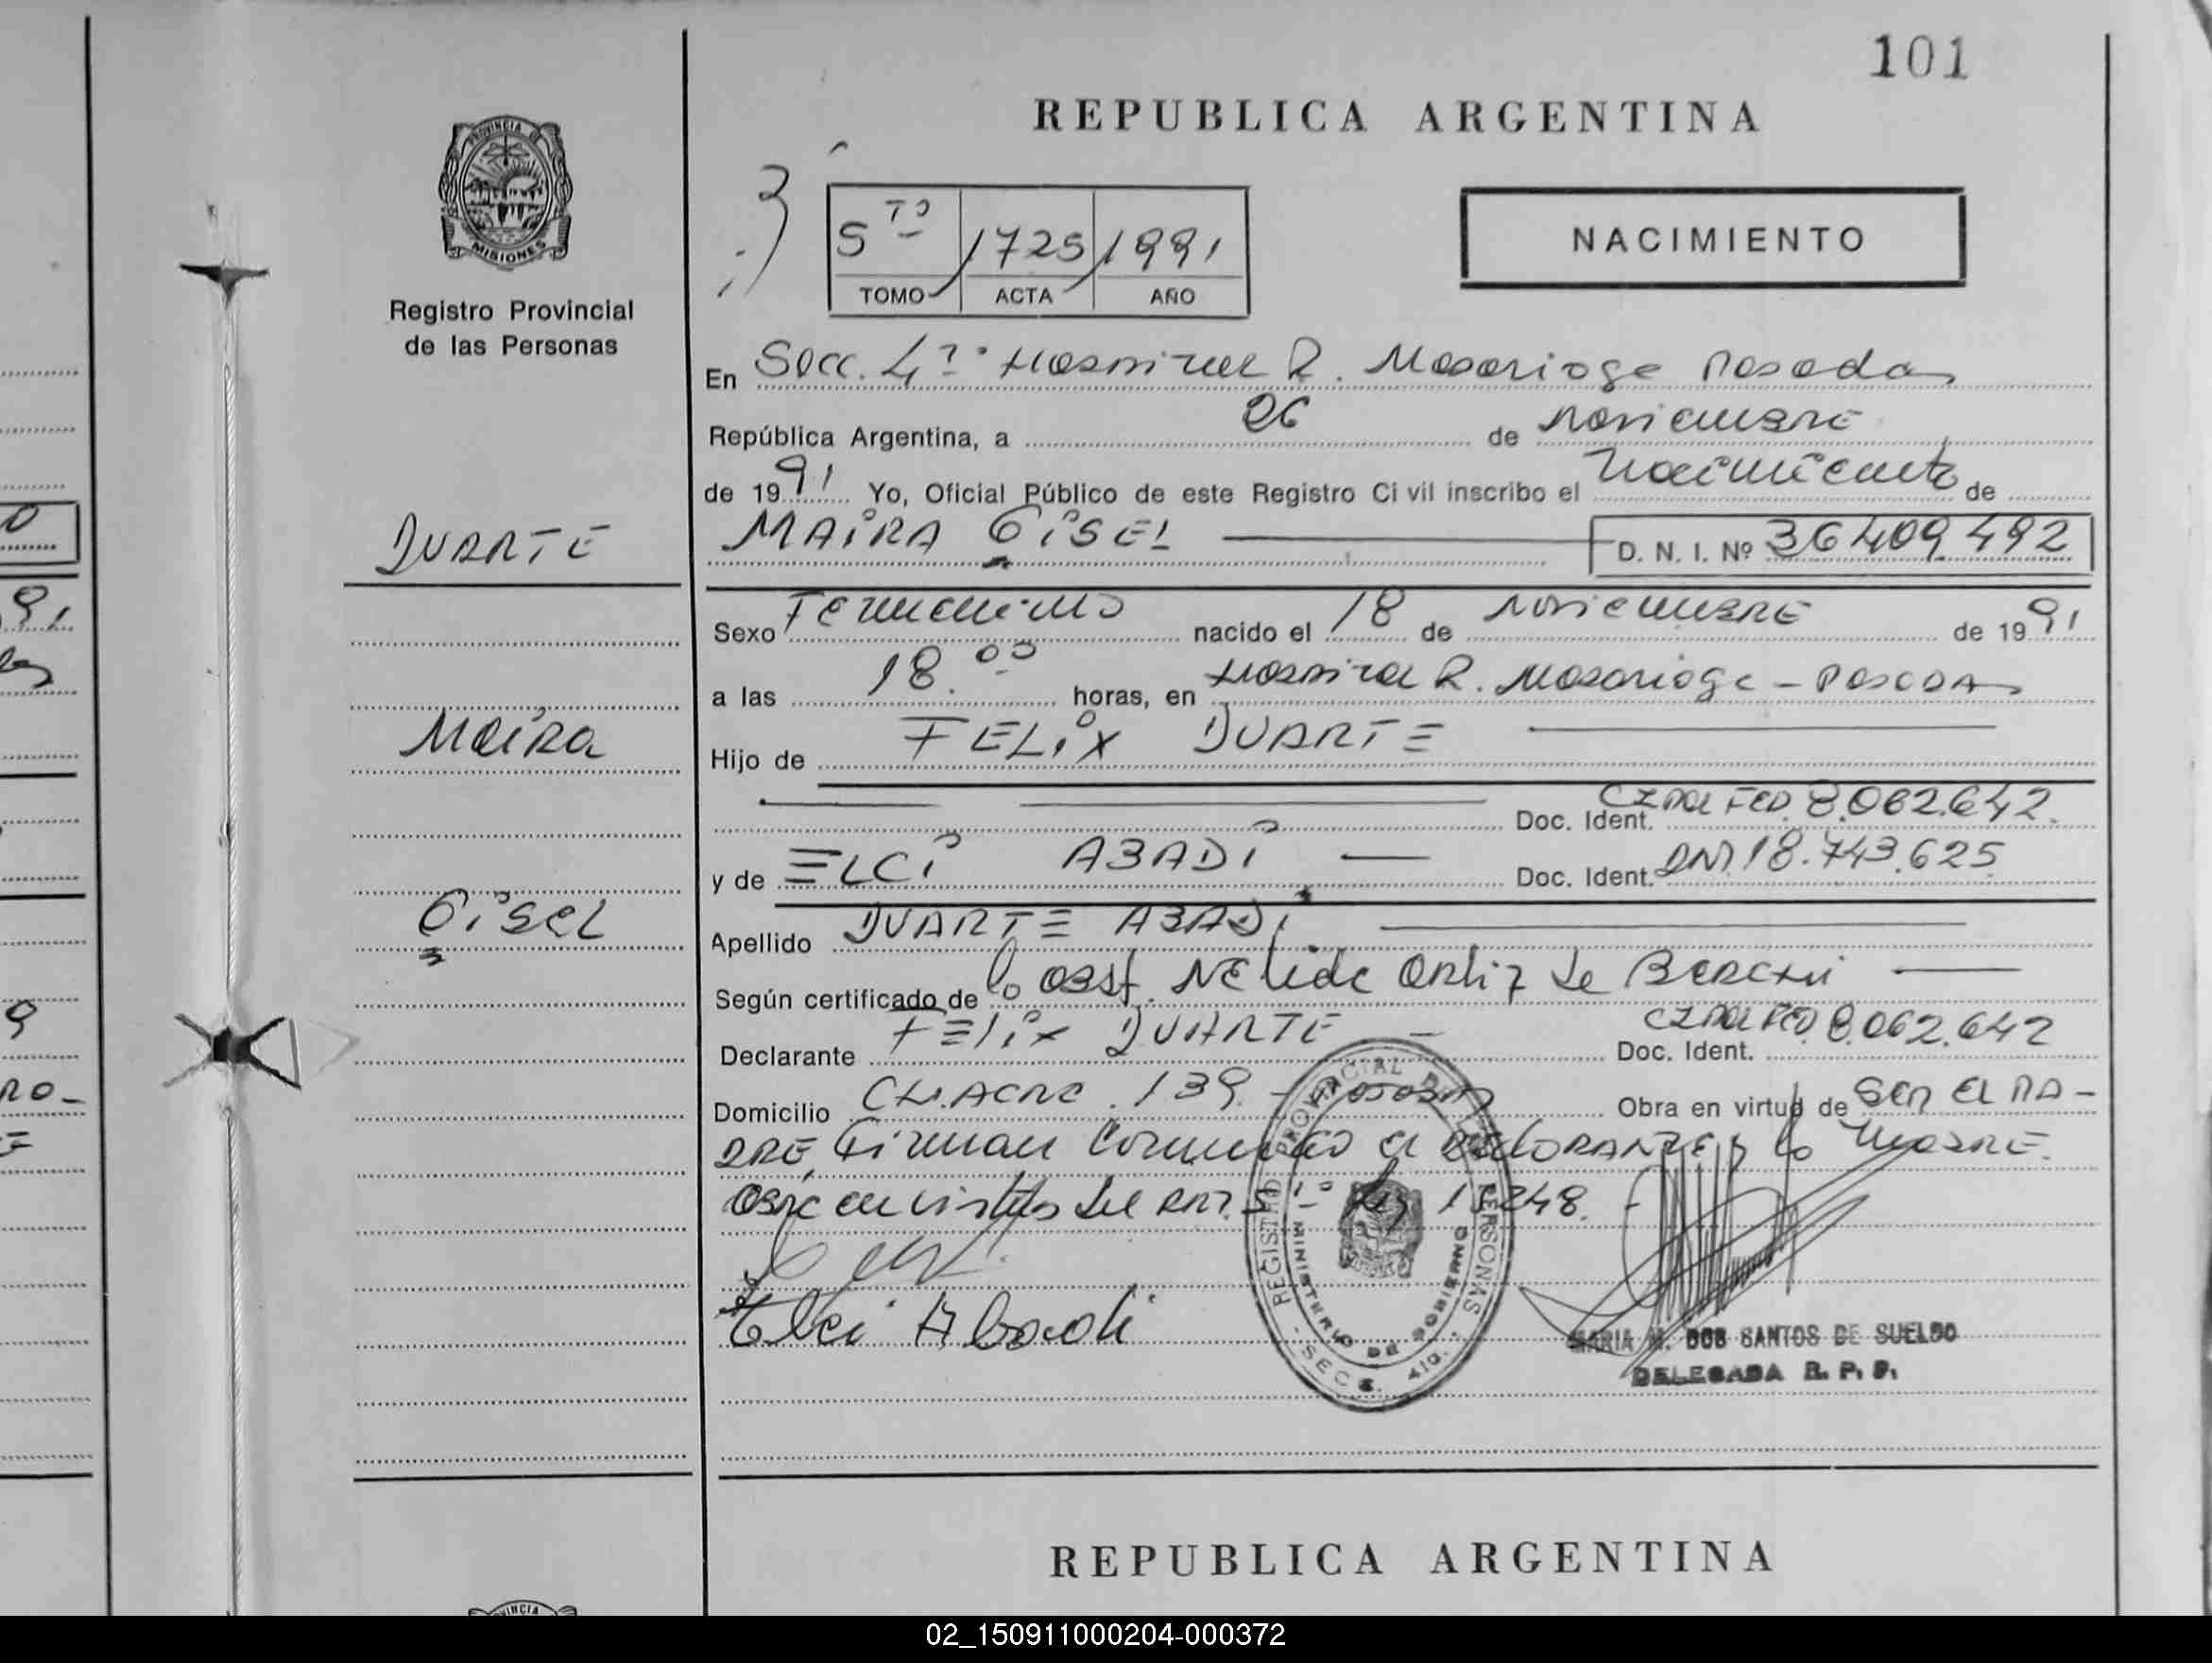 101
REPUBLICA ARGENTINA
PROVINCIA DE
MISIONES
Registro Provincial
de las Personas
5 TO 1725 1991
TOMO ACTA AÑO
NACIMIENTO
En Secc. 4ta Hospital R. Madariaga Posadas
República Argentina, a 26 de Noviembre
de 1991 Yo, Oficial Público de este Registro Civil inscribo el Nacimiento de
DUARTE
MAIRA GISEL D. N. I. Nº 36409492
Sexo Femenino nacido el 18 de Noviembre de 1991
a las 18.00 horas, en Hospital R. Madariaga - Posadas
Maira
Hijo de FELIX DUARTE
Doc. Ident. CI Pol Fed. 8.062.642.
y de ELCI ABADI Doc. Ident. DNI 18.743.625
Gisel
Apellido DUARTE ABADI
Según certificado de la Obst. Nelida Ortiz de
Declarante Felix DUARTE Doc. Ident. CI Pol Fed. 8.062.642
Domicilio CHACRA 139 - Posadas Obra en virtud de Ser El PA-
DRE, Firman el DECLARANTE y la MADRE.
Obra en virtud del
Elci Abadi
REGISTRO PROVINCIAL DE LAS PERSONAS
MINISTERIO DE GOBIERNO
MARIA M. DOS SANTOS DE SUELDO
DELEGADA R. P. P.
REPUBLICA ARGENTINA
02_150911000204-000372